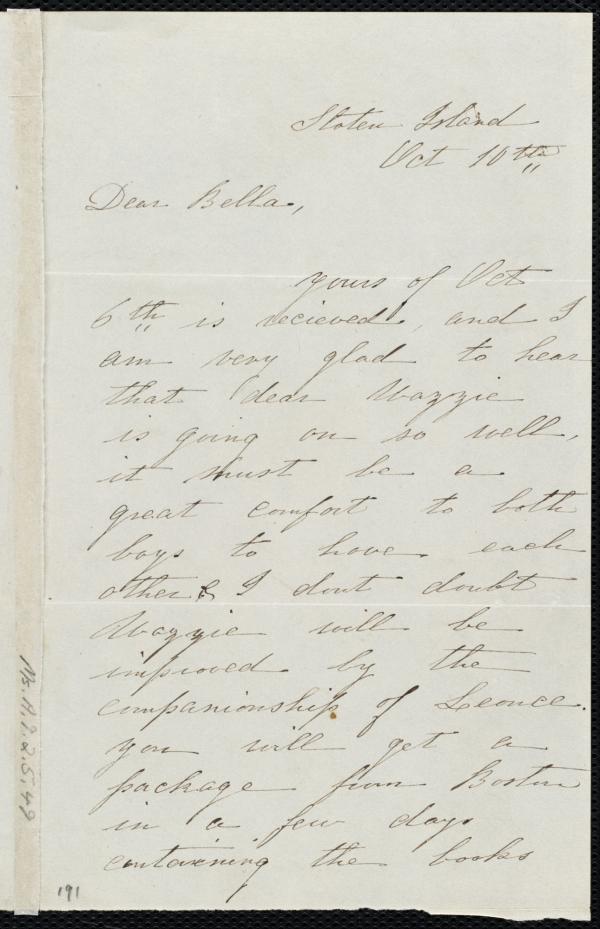 Staten Island
Oct 10th
Dear Bella,
yours of Oct
6th is recieved, and I
am very glad to hear
that dear Wazzie
is going on so well,
it must be a
great comfort to both
boys to have each
other & I dont doubt
Wazzie will be
improved by the
companionship of Leonce.
you will get a
package from Boston
in a few days
containing the books
Ms. A.9.2.5.49
191